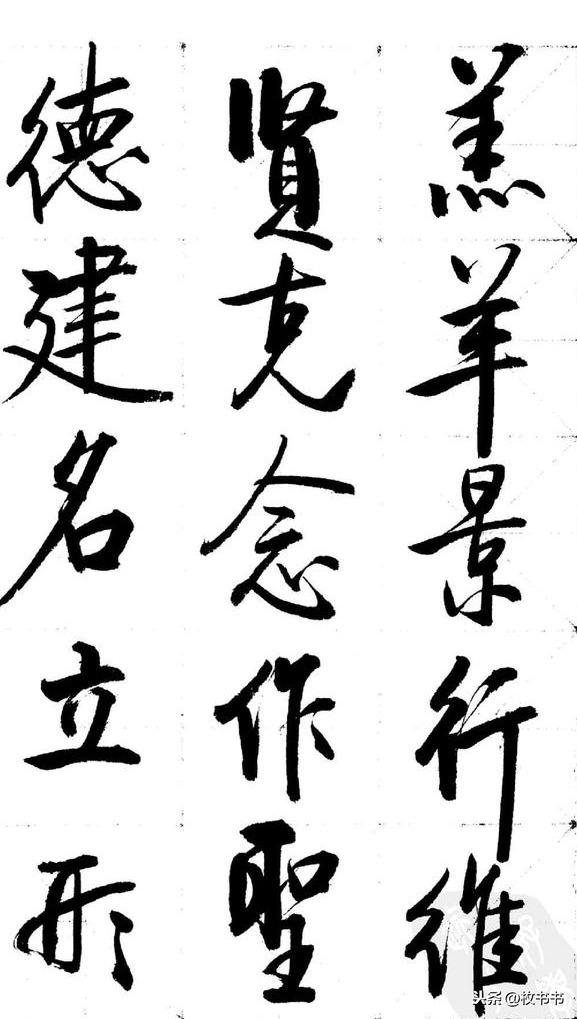 羔羊景行維
賢克念作聖
德建名立形
头条@枚书书